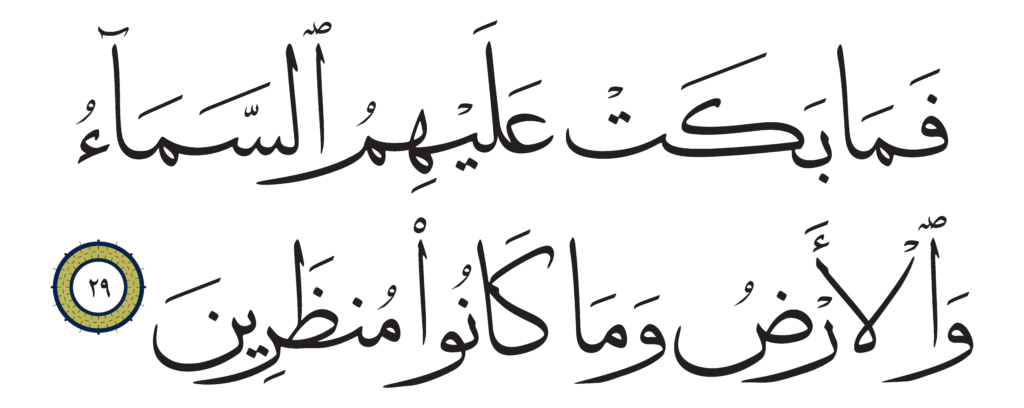 فَمَا بَكَتْ عَلَيْهِمُ ٱلسَّمَآءُ
وَٱلْأَرْضُ وَمَا كَانُوا۟ مُنظَرِينَ ٢٩